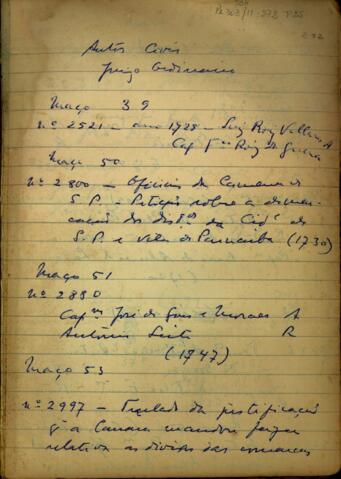 Autos Civis
Juizo Ordinario
Maço 39
nº 2521 - ano 1728 - Luiz Roiz Villares A
Cap. Fco Roiz da Guerra
Maço 50
nº 2800 - Officios da Camara de
S. P. - Petição sobre a demar-
cação dos distos da Cide de
S. P. e villa de Parnaiba (1730)
Maço 51
nº 2880
Capm José de Goes e Moraes A
Antônio Leite R
(1747)
Maço 53
nº 2997 - Treslado da justificaçã
q a Camara mandou fazer
relativa as divisas das comarcas